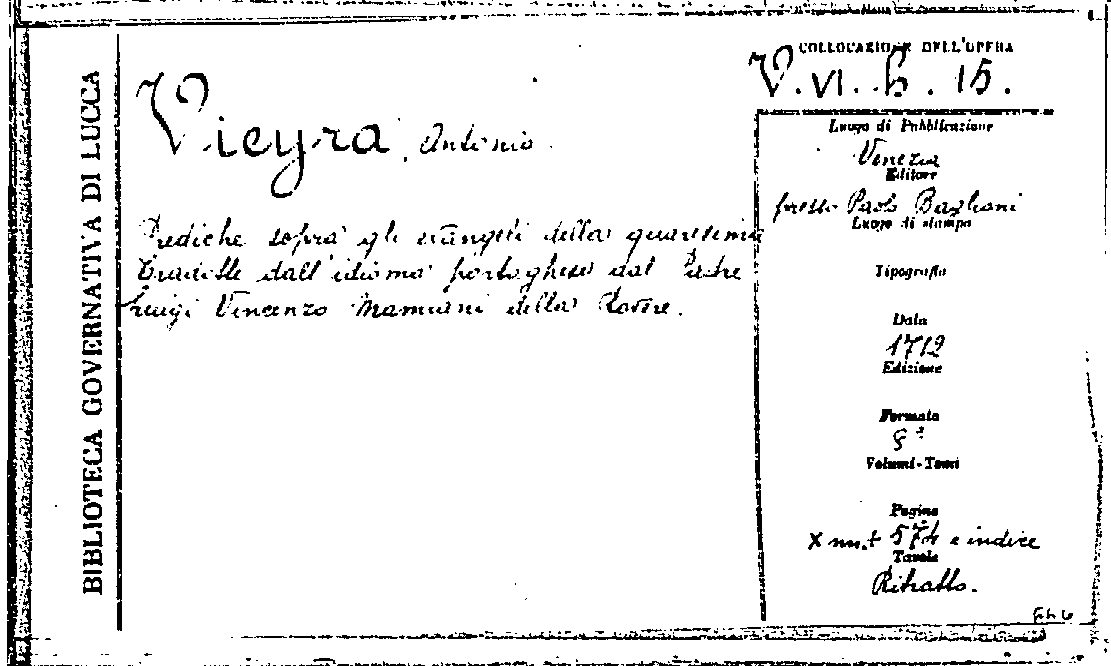 BIBLIOTECA GOVERNATIVA DI LUCCA
Vieyra, Antonio.
Prediche sopra gli evangeli della quaresima
tradotte dall'idioma portoghese dal Padre
Luigi Vincenzo Mamiani della Rovere.
COLLOCAZIONE DELL'OPERA
V. VI. b. 15.
Luogo di Pubblicazione
Venezia
Editore
presso Paolo Baglioni
Luogo di stampa
Tipografia
Data
1712
Edizione
Formato
8°
Volumi-Tomi
Pagine
X nn.+ 574 e indice
Tavole
Ritratto.